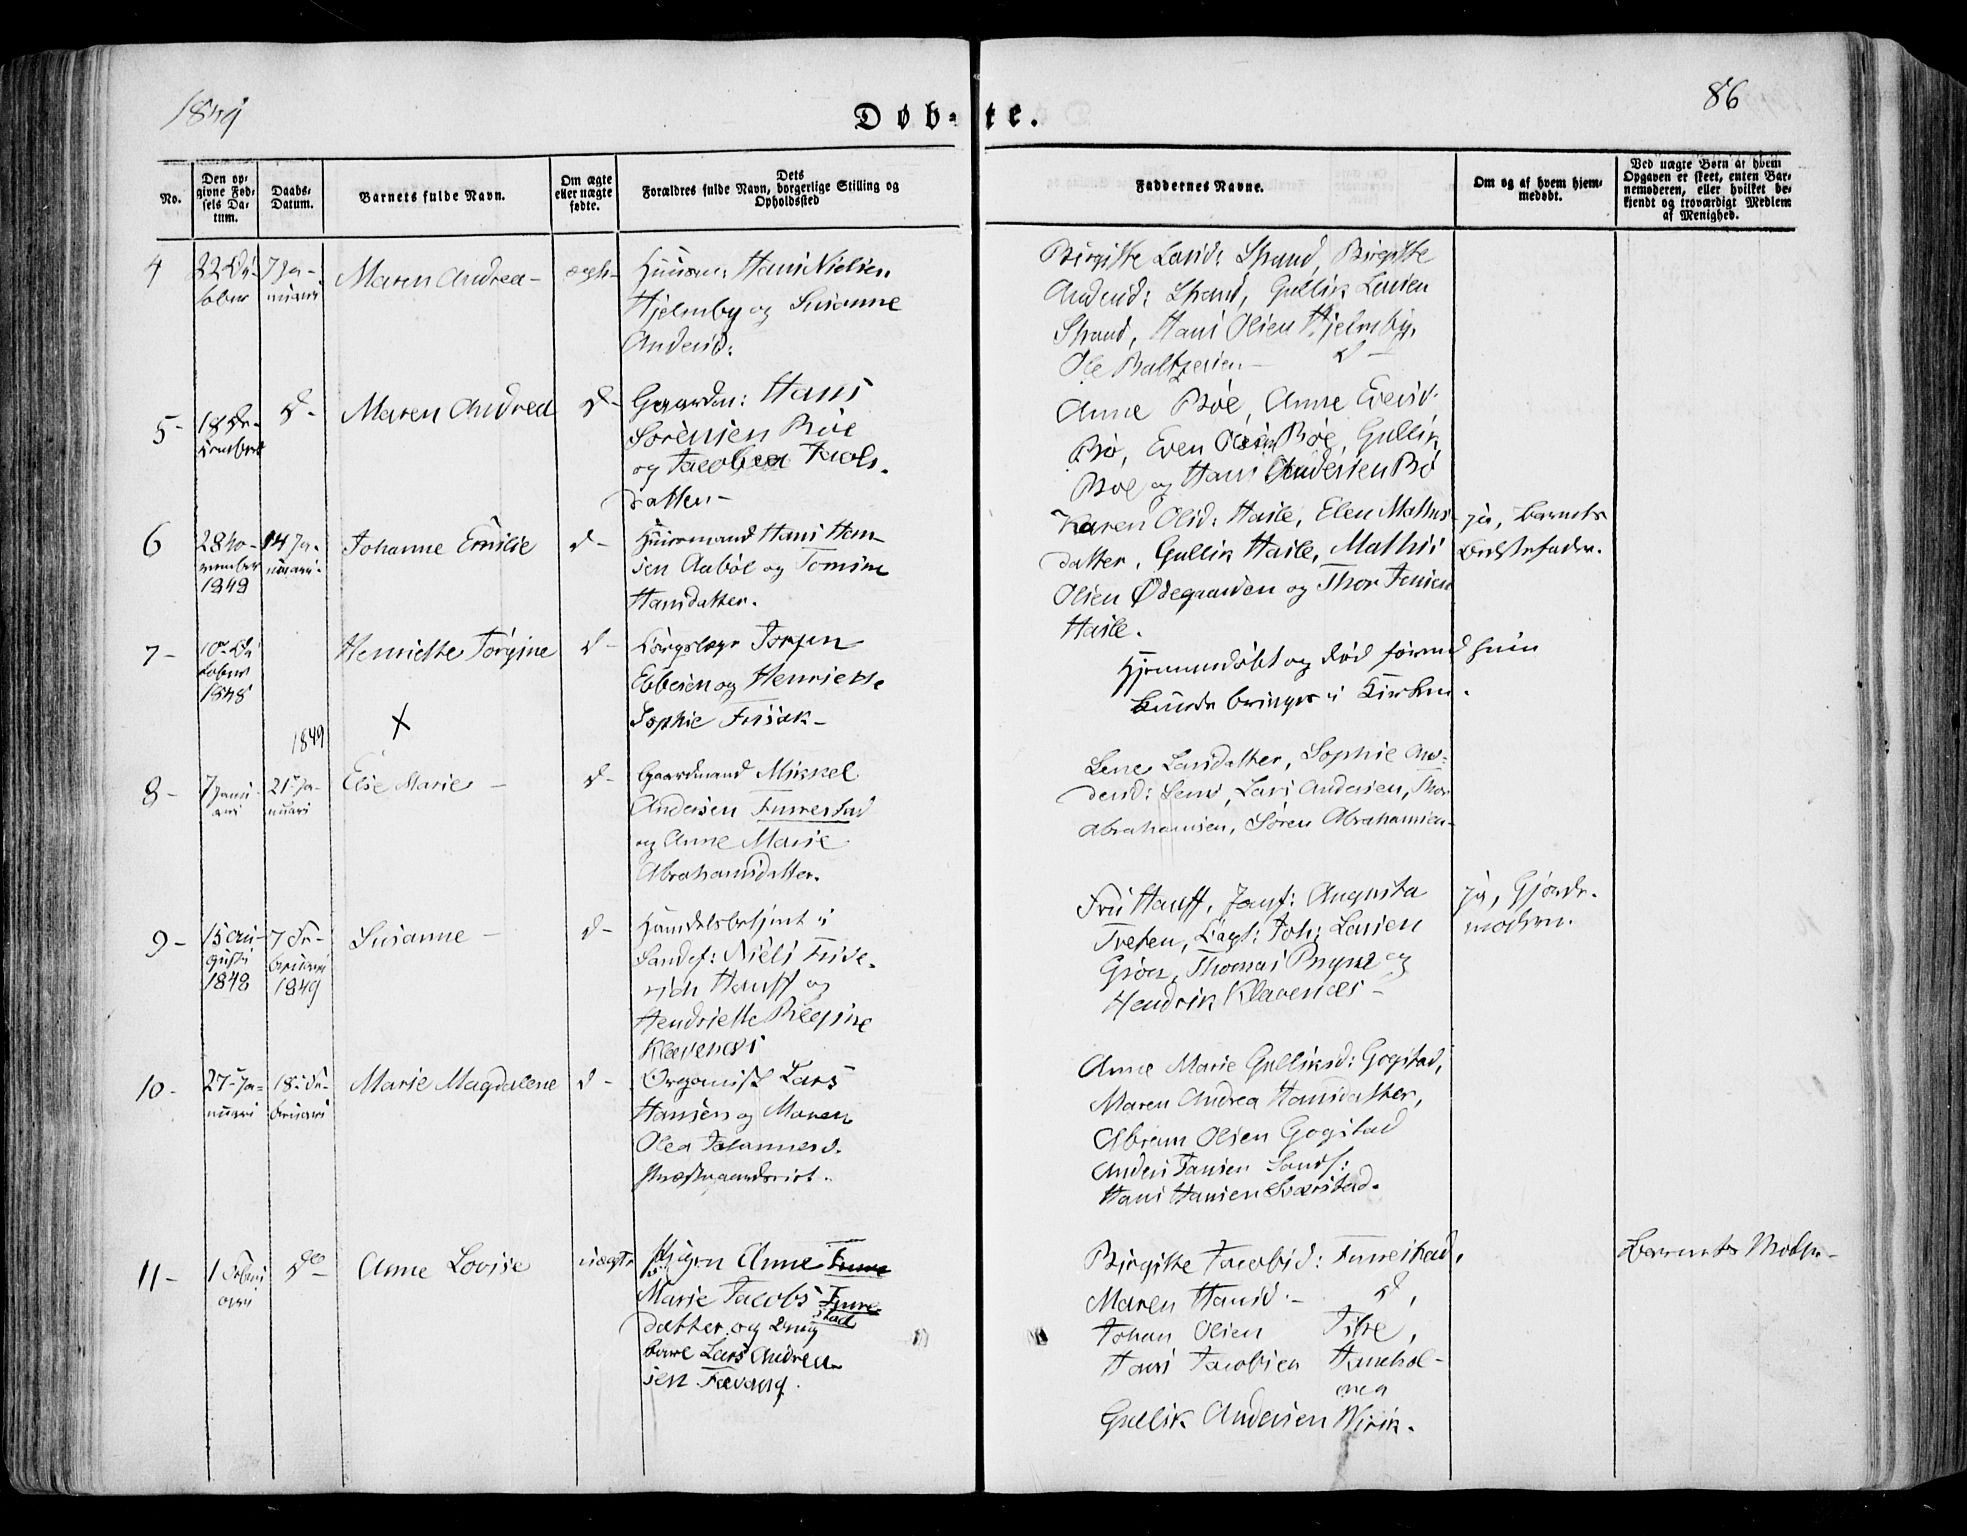 1849
Døb-te.
86
No.
Den op-
givne Fød-
sels Da-
tum.
Daabs-
Datum.
Barnets fulde Navn.
Om ægte
eller uægte
fødte.
Dets
Forældres fulde Navn, borgerlige Stilling og
Opholdssted
Faddernes Navne.
Om og af hvem hjem-
medøbt.
Ved uægte Børn at hvem
Opgaven er skeet, enten Bar-
nemoderen, eller hvilket be-
kjendt og troværdigt Medlem
af Menighed.
4
22 Oc-
tober
7 Ja-
nuari
Maren Andrea-
ægte
Huusm: Hans Nielsen
Hjelmby og Susanne
Andersd:
Birgitte Larsd: Strand, Birgitte
Andersd: Strand, Gullik Larsen
Strand, Hans Olsen Hjelmby,
Ole Baltzersen- d-
5-
18 De-
cember
d-
Maren Andrea
d-
Gaardm: Hans
Sørensen Bøe
og Jacobea Jacobs-
datter-
Anne Bøe, Anne Evensd.
Bø, Even Olsen Bøe, Gullik
Boe og Hans Andersen Bø
6
28 No-
vember
1848
14 Ja-
nuari-
Johanne Emilie
d-
Huusmand Hans Han-
sen Aabøe og Tomine
Hansdatter.
Karen Olsd: Hasle, Elen Mathis-
datter, Gullik Hasle, Mathis
Olsen Ødegaarden og Thor Jensen
Hasle.
ja, Barnets
Bedstefader.
7-
10de Oc
tober
1848
Henriette Jørgine
d-
Corpslæge Jørgen
Ebbesen og Henriette
Sophie
Hjemmedøbt og død førend hun
kunde bringes i Kirken.
X
1849
8-
7 Janu-
ari
21de Ja-
nuari
Else Marie-
d-
Gaardmand Mikkel
Andersen Furrestad
og Anne Marie
Abrahamsdatter.
Lene Larsdatter, Sophie An-
dersd: Lars Andersen, Thor
Abrahamsen, Søren Abrahamsen-
9-
15 Au-
gusti
1848
7 Fe-
bruari
1849
Susanne-
d-
Handelsbetjent i
Sandef: Niels Fride-
rich Hauff og
Hendriette Regine
Klavenæs
Fru Hauff, Jomf: Augusta
Treten, Capt: Joh: Larsen
Grøn, Thomas Bryne og
Hendrik Klavenæs-
ja, Gjorde-
moderen.
10-
27de Ja-
nuari
18de Fe-
bruari
Marie Magdalene
d-
Organist Lars
Hansen og Maren
Olea Johannesd.
Præstegaardseiet.
Anne Marie Gulliksd: Gogstad,
Maren Andrea Hansdatter,
Abram Olsen Gogstad
Anders Jansen Sandf:
Hans Hansen Sværstad.
11-
1 Febru
ari
do-
Anne Lovise
uægte
Pigen Anne Furre
Marie Jacobs Furre
stad
datter og Ung
karl Lars Andrea-
sen Fævang.
Birgitte Jacobsd: Furrestad,
Maren Hansd.- d,
Johan Olsen
Hans Jacobsen Hanehol-
men
Gullik Andersen Virik.
Barnets Moder-